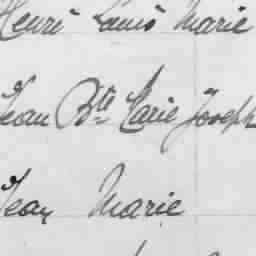 Henri Louis Marie
Jean Bte Marie Joseph
Jean Marie